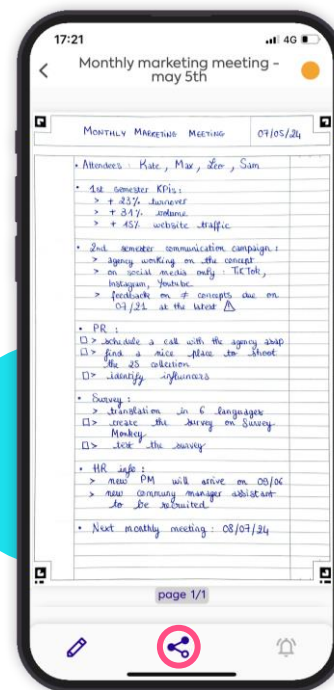 17:21 4G
Monthly marketing meeting -
may 5th
MONTHLY MARKETING MEETING 07/05/24
• Attendees : Kate, Max, Leo, Sam
• 1st semester KPIs :
> + 23% turnover
> + 31% volume
> + 15% website traffic
• 2nd semester communication campaign :
> agency working on the concept
> on social media only : TikTok,
Instagram, Youtube
> feedback on ≠ concepts due on
07/21 at the latest ⚠
• PR :
□> schedule a call with the agency asap
□> find a nice place to shoot
the 25 collection
□> identify influencers
• Survey :
> translation in 6 languages
□> create the survey on Survey
Monkey
□> test the survey
• HR info :
> new PM will arrive on 09/06
> new community manager assistant
to be recruited
• Next monthly meeting : 08/07/24
page 1/1